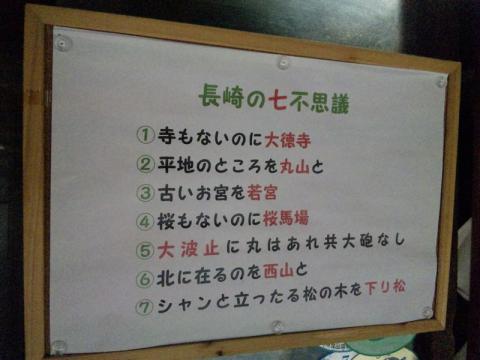 長崎の七不思議
①寺もないのに大徳寺
②平地のところを丸山と
③古いお宮を若宮
④桜もないのに桜馬場
⑤大波止に丸はあれ共大砲なし
⑥北に在るのを西山と
⑦シャンと立ったる松の木を下り松